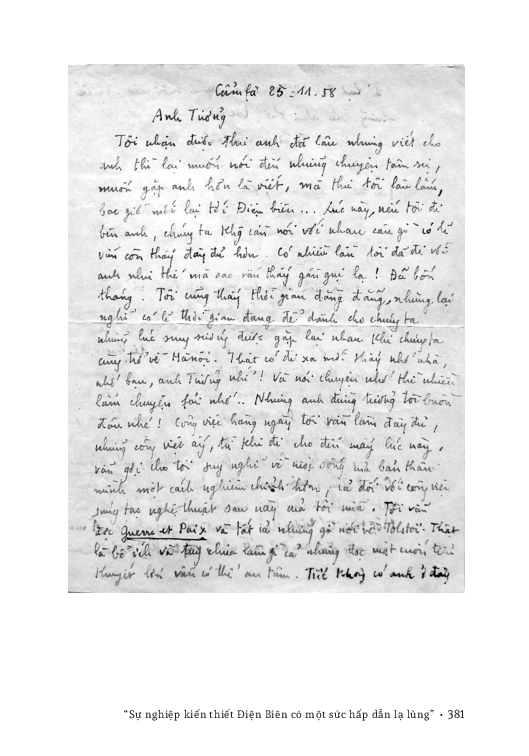 Cẩmfả 25-11.58
Anh Tưởng
Tôi nhận được thư anh đã lâu nhưng viết cho
anh thì lại muốn nói đến những chuyện tâm sự,
muốn gặp anh hơn là viết, mà thư tôi lâu lắm,
bao giờ mới lại tới Điện biên... Lúc này, nếu tôi đi
bên anh, chúng ta khg cần nói với nhau câu gì có lẽ
vẫn còn thấy đầy đủ hơn. Có nhiều lần tôi đã đi với
anh như thế mà sao vẫn thấy gần gụi lạ! Đã bốn
tháng. Tôi cũng thấy thời gian đằng đẵng, nhưng lại
nghĩ có lẽ thời gian đang để dành cho chúng ta
những lúc sung sướng được gặp lại nhau khi chúng ta
cùng trở về Hànội. Thật có đi xa mới thấy nhớ nhà,
nhớ bạn, anh Tưởng nhỉ! Và nói chuyện nhớ thì nhiều
lắm chuyện fải nhớ.. Nhưng anh đừng tưởng tôi buồn
đâu nhé! Công việc hàng ngày tôi vẫn làm đầy đủ,
những công việc ấy, từ khi đi cho đến mấy lúc này,
vẫn gợi cho tôi suy nghĩ về cuộc sống mà bản thân
mình một cách nghiêm chỉnh hơn, cả đối với công việc
sáng tạo nghệ thuật sau này của tôi nữa. Tôi vẫn
đọc Guerre et Paix và tất cả những gì nói về Tolstoi. Thật
là bổ ích và tuy chưa làm gì cả nhưng đọc một cuốn tiểu
thuyết lớn vẫn có thể an tâm. Tiếc không có anh ở đây
"Sự nghiệp kiến thiết Điện Biên có một sức hấp dẫn lạ lùng" • 381